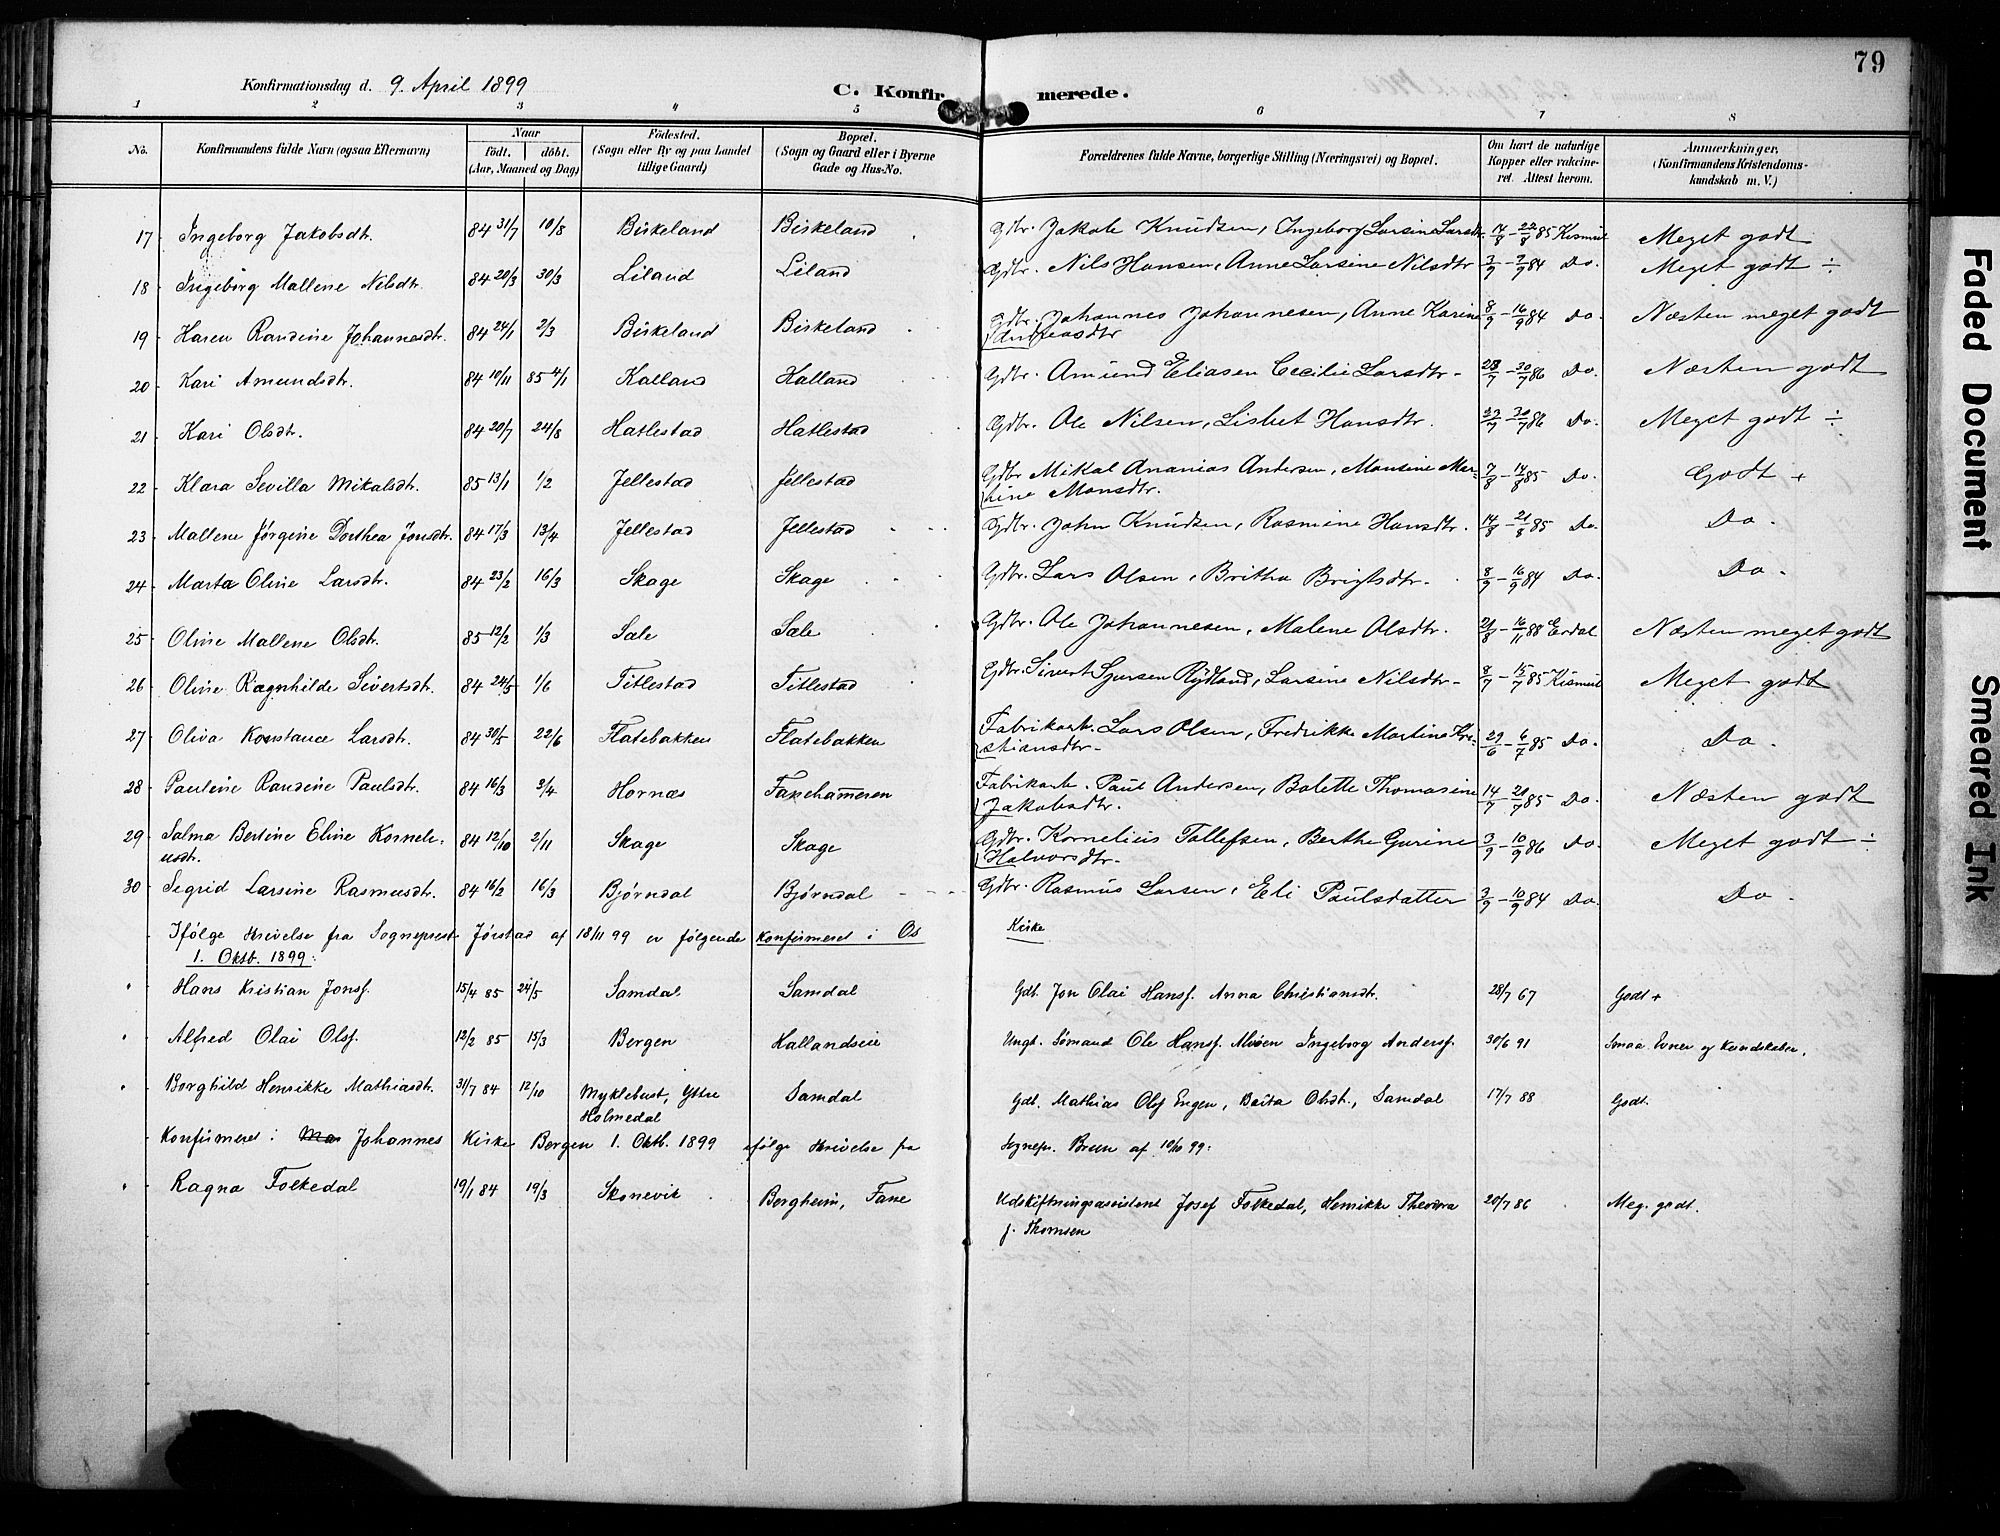 79
Konfirmationsdag d. 9. April 1899
C. Konfirmerede.
1 2 3 " 5 6 7 8
No. Konfirmandens fulde Navn (ogsaa Efternavn) Naar födt. döbt. (Aar, Maaned og Dag) Födested. (Sogn eller By og paa Landet tillige Gaard) Bopæl. (Sogn og Gaard eller i Byerne Gade og Hus-No. Forældrenes fulde Navne, borgerlige Stilling (Næringsvei) og Bopæl. Om havt de naturlige Kopper eller vakcineret. Attest herom. Anmærkninger. (Konfirmandens Kristendomskundskab m. V.)
17 Ingeborg Jakobsdtr. 84 31/7 10/8 Birkeland Birkeland Gdbr. Jakob Knudsen, Ingeborg Larsine Larsdtr. 14/8 - 22/8 85 Kismul Meget godt
18 Ingeborg Mallene Nilsdtr. 84 20/3 30/3 Liland Liland Gdbr. Nils Hansen, Anne Larsine Nilsdtr 3/9 - 9/9 84 Do. Meget godt ÷
19 Karen Randine Johannesdtr. 84 24/1 2/3 Birkeland Birkeland Gdbr. Johannes Johannesen, Anne Karine 8/9 - 16/9 84 Do. Næsten meget godt
Andreasdtr
20 Kari Amundsdtr. 84 10/11 85 4/1 Kalland Halland Gdbr. Amund Eliasen Cecilie Larsdtr - 23/7 - 30/7 86 Do. Næsten godt
21 Kari Olsdtr. 84 20/7 24/8 Hatlestad Hatlestad Gdbr. Ole Nilsen, Lisbet Hansdtr. 23/7 - 30/7 86 Do. Meget godt ÷
22 Klara Sevilla Mikalsdtr. 85 13/1 1/2 Jellestad Jellestad Gdbr Mikal Ananias Andersen, Monsine Mar- 7/8 - 14/8 85 Do. Godt +
tine Monsdtr.
23 Mallene Jørgine Dorthea Jonsdtr. 84 17/3 13/4 Jellestad Jellestad Gdbr. John Knudsen, Rasmine Hansdtr. 14/8 - 21/8 85 Do. Do.
24 Marta Oline Larsdtr. 84 23/2 16/3 Skage Skage Gdbr. Lars Olsen, Britha Brigtsdtr. 8/9 - 16/9 84 Do. Do.
25 Oline Mallene Olsdtr. 85 12/2 1/3 Sæle Sæle Gdbr. Ole Johannesen, Malene Olsdtr. 21/8 - 16/11 88 Erdal Næsten meget godt
26 Oline Ragnhilde Sivertsdtr. 84 24/5 1/6 Titlestad Titlestad Gdbr. Sivert Sjursen Rydland, Larsine Nilsdtr - 8/7 - 15/7 85 Kismul Meget godt
27 Oliva Konstance Larsdtr. 84 30/5 22/6 Flatebakken Flatebakken Fabrikarb. Lars Olsen, Fredrikke Martine Kri- 29/6 - 6/7 85 Do. Do.
stiansdtr.
28 Pauline Randine Paulsdtr. 84 16/3 3/4 Hornæs Fanehameren Fabrikarb. Paul Andersen, Bolette Thomasine 14/7 - 21/7 85 Do. Næsten godt
Jakobsdtr.
29 Salma Bertine Eline Korneli- 84 12/10 2/11 Skage Skage Gdbr. Kornelius Tollefsen, Berthe Gurine 3/9 - 10/9 86 Do. Meget godt ÷
usdtr. Halvorsdtr.
30 Segrid Larsine Rasmusdtr. 84 16/2 16/3 Bjørndal Bjørndal Gdbr. Rasmus Larsen, Eli Paulsdatter 3/9 - 10/9 84 Do. Do.
Ifølge skrivelse fra Sogneprest Jørstad af 18/11 99 er følgende konfirmeret i Os Kirke
1. Oktb. 1899:
" Hans Kristian Jonsf. 15/4 85 24/5 Samdal Samdal Gdb. Jon Olai Hansf. Anna Christiansdtr. 28/7 67 Godt +
" Alfred Olai Olsf. 12/2 85 15/3 Bergen Hallandseie Ungk. Sømand Ole Hansf. Alvøen Ingeborg Andersf. 30/6 91 Smaa Evner og Kundskaber.
" Borghild Henrikke Mathiasdtr. 31/7 84 12/10 Myklebust, Yttre Samdal Gdb. Mathias Olsf Engen, Brita Olsdt., Samdal 17/7 88 Godt.
Holmedal
Konfirmeret i Johannes Kirke Bergen 1. Oktb. 1899 ifølge skrivelse fra Sognepr. Brun af 10/10 99:
" Ragna Folkedal 19/1 84 19/3 Skonevik Bergheim, Fane Udskiftningsassistent Josef Folkedal, Henrikke Theodora 20/7 86 Meg. godt.
f. Thomsen
Faded Document
Smeared Ink